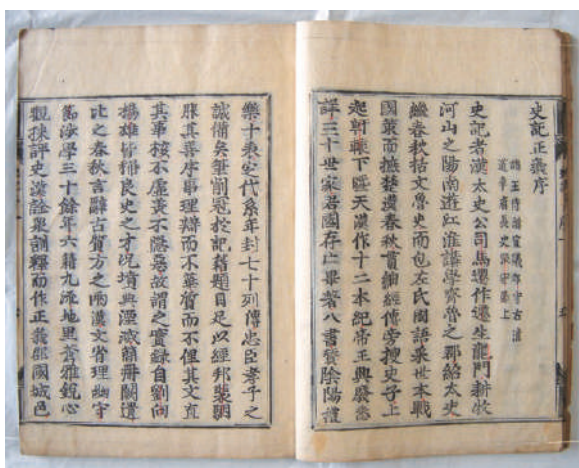 史記正義序
諸王侍讀宣議郎守右清
道率府長史張守節上
史記者漢太史公司馬遷作遷生龍門耕牧
河山之陽南遊江淮講學齊魯之郡紹太史
繼春秋括文魯史而包左氏國語采世本戰
國策而摭楚漢春秋貫紬經傳旁搜史子上
起軒轅下曁天漢作十二本紀帝王興廢悉
詳三十世家君國存亡畢著八書贊陰陽禮
樂十表定代系年封七十列傳忠臣孝子之
誠備矣筆削冠於記籍題目足以經邦裴駰
服其善序事理辯而不華質而不俚其文直
其事核不虛美不隱惡故謂之實錄自劉向
揚雄皆稱良史之才況墳典湮滅簡冊闕遺
比之春秋言辭古質方之兩漢文省理幽守
節涉學三十餘年六籍九流地里蒼雅銳心
觀採評史漢詮衆訓釋而作正義郡國城邑